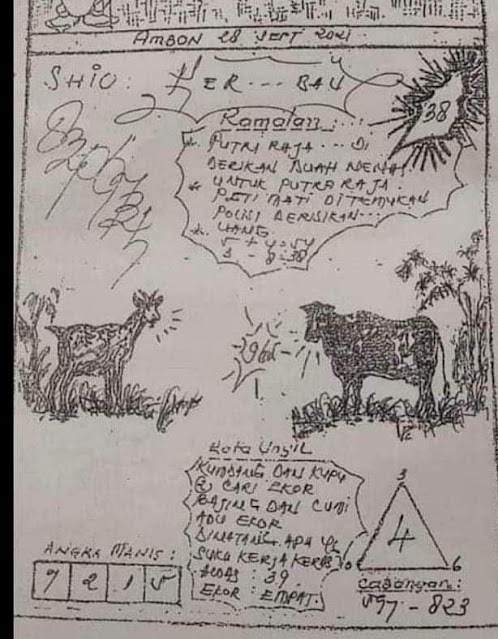 AMBON 28 SEPT 2021
SHIO: KER... BAU
38
Ramalan:..:
* PUTRI RAJA... DI
BERIKAN BUAH NENAS
* UNTUK PUTRA RAJA.
PETI MATI DITEMUKAN
POLISI BERISIKAN...
* UANG.
5 + 4 = 54
3 - 8 = 38
Kata Ungil
KUMBANG DAN KUPU
CARI EKOR
BAJING DAN CUMI
ADU EKOR
BINATANG APA YG
SUKA KERJA KERAS
ALDAS : 39.
EKOR : EMPAT.
ANGKA MANIS :
9 2 1 5
3
4
6
Cadangan:
597 - 823